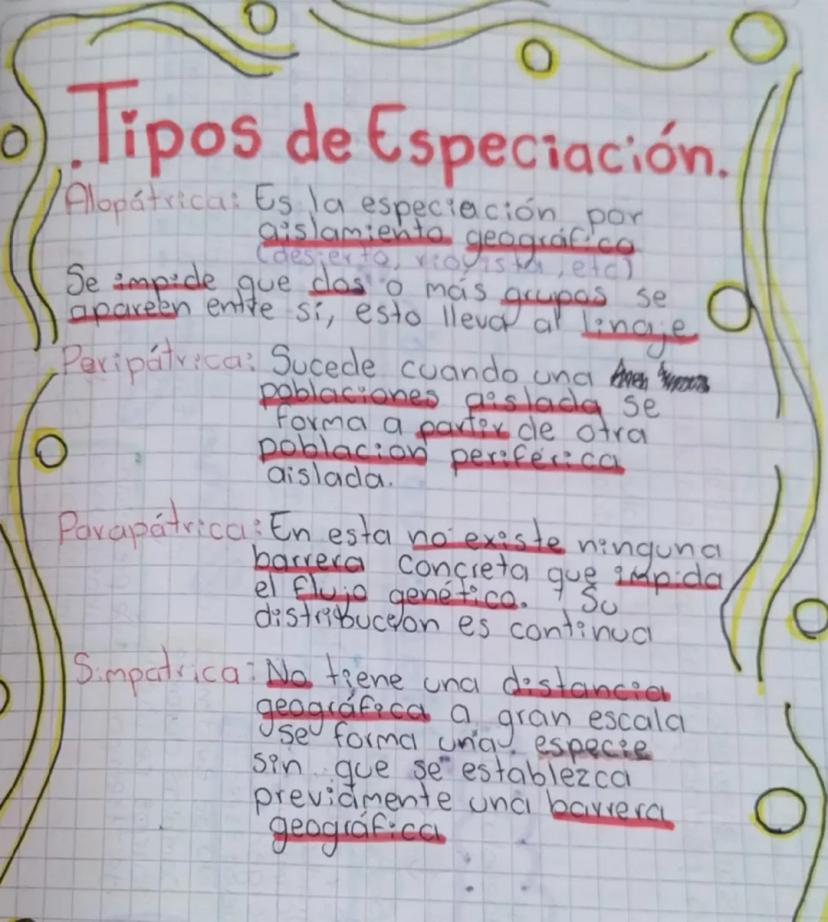 Tipos de Especiación.
Alopátrica: Es la especiación por
aislamiento geográfico
(desierto, etc)
Se impide que dos o más grupos se
apareen entre sí, esto lleva al linaje
Peripátrica: Sucede cuando una
poblaciones aislada se
forma a partir de otra
poblacion periférica
aislada.
Parapátrica: En esta no existe ninguna
barrera concreta que impida
el flujo genético. Su
distribucion es continua
Simpatrica: No tiene una distancia
geográfica a gran escala
se forma una especie
sin que se establezca
previamente una barrera
geográfica